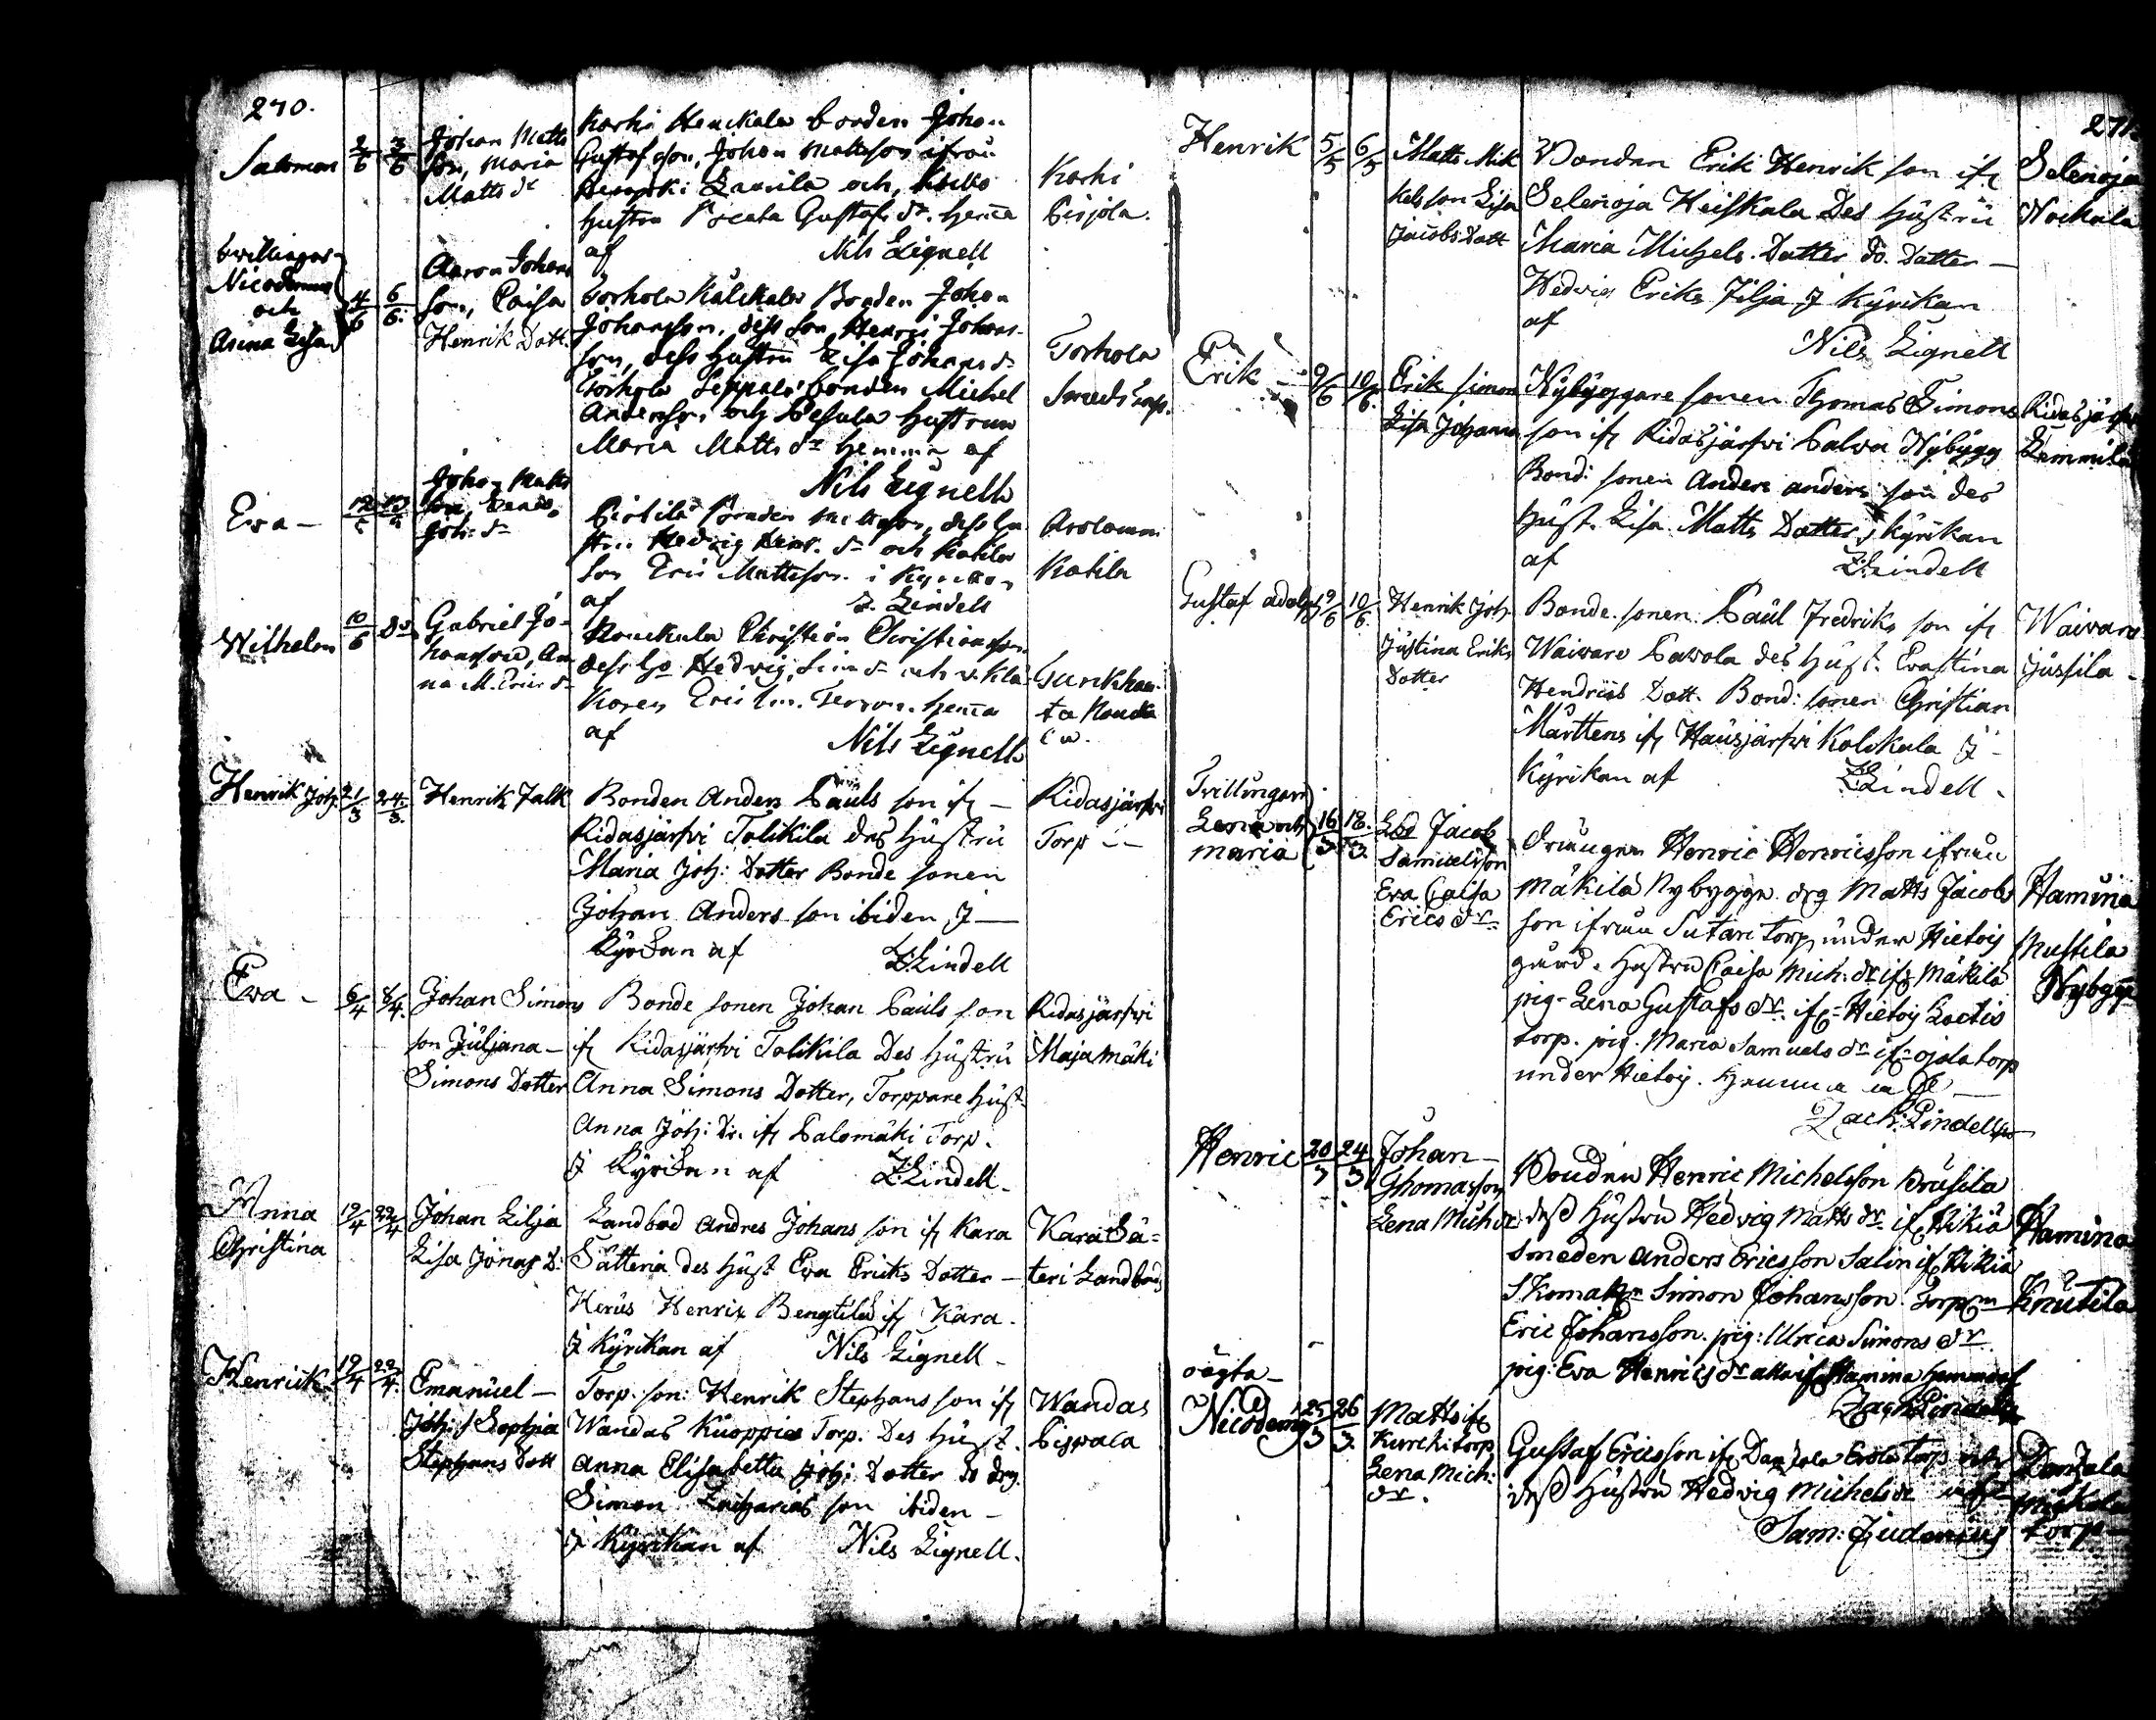 270.
Salomon 2/6 3/6 Johan Matts
son, Maria
Matts dr
Korhi Heickala bonden Johan
Gustafsson, Johan Mattsson ifrån
Laurila och
hustru Gustafs dr. hema
af Nils Lignell
Korhi
Pirjola.
tvillingar
Nicodemus
och
Asina Lisa
4/6 6/6 Aaron Johans
son, Caisa
Henrik Dott.
Torhola Kålckala Bonden Johan
Johansson, dess son Henric Johans-
son, dess hustru Lisa Johans dr
Torhola Seppälä bonden Michel
Andersson och Pesula hustrun
Maria Matts dr hemma af
Nils Lignell
Torhola
Smeds torp.
Eva - Johan Matts
son,
Joh: dr
Pirtilä bonden Mattsson, dess hu
stru Hedvig Henr. dr och Katila
son Eric Mattsson i Kyrckan
af Z. Lindell
Katila
Wilhelm 10/6 Do Gabriel Jo-
hansson, An
na M. Erics dr
Nouckula Christian Christiansson
dess ho Hedvig Sim dr och
af Nils Lignell
Henrik Joh: 21/3 24/3 Henrik Falk
Bonden Anders Påuls son ifr -
Ridasjärfvi Tolikila des hustru
Maria Joh: Dotter Bonde sonen
Johan Anders son ibiden J
Kyrckan af Z:Lindell
Ridasjärfvi
Torp
Eva - 6/4 8/4 Johan Simons
son Juljana -
Simons Dotter
Bonde sonen Johan Påuls son
ifr Ridasjärfvi Tolikila Des hustru
Anna Simons Dotter, Torppare hust
Anna Joh: Dr. ifr Palomäki Torp.
J Kyrckan af Z:Lindell -
Ridasjärfvi
Maja mäki
Anna
Christina
19/4 22/4 Johan Lilja
Lisa Jonas D:
Landbod Andres Johans son ifr Kara
Sätteria des hust Eva Eriks Dotter -
Herus Henrix Bengtiläd ifr Kara -
J Kyrikan af Nils Lignell -
Kara Sä=
teri Landbod
Henrik 19/4 22/4 Emanuel -
Joh: / Sophia
Stephans Dott
Torp. son: Henrik Stephans son ifr
Wandas Kuoppia Torp. Des Hust.
Anna Elisabetta Joh: Dotter Do drg.
Simon Zacharias son ibiden -
J Kyrikan af Nils Lignell.
Wandas
Piswala
271.
Henrik 5/5 6/5 Matts Mik
kels son Lisa
Jacobs Dott
Bonden Erik Henrik son ifr
Selenoja Heiskala Des hustru
Maria Michels. Dotter Do. Dotter -
Hedvig Eriks Filja J Kyrikan
af Nils Lignell
Selenoja
Nockala
Erik - 9/6 10/6 Erik Simon
Lisa Johanna
Nybyggare sonen Thomas Simons
son ifr Ridasjärfvi Palva Nybygg
Bond: sonen Anders anders son des
hust. Lisa Matts Dotter J Kyrikan
af Z:Lindell
Ridasjärfvi
Lemmilä
Gustaf adolph 9/6 10/6 Henrik Joh.
Justina Eriks
Dotter
Bonde sonen Paul Fredriks son ifr
Waivare Pavola des hust. Evastina
Hendriks Dott. Bond: sonen Christian
Mårttens ifr Hausjärfvi Kolckala J
Kyrikan af Z:Lindell -
Waivare
jussila -
Tvillingar
Lena och
Maria
16/3 18/3 Jacob
Samuelsson
Eva Caisa
Erics dr
Drängen Henric Henricsson ifrån
Mäkilä Nybygge. drg Matts Jacobs
son ifrån Sutari torp under Hietoj
gård. Hustru Caisa Mich: dr ifr Mäkilä
pig- Lena Gustafs dr. ifr Hietoj Loctis
torp. pig. Maria Samuels dr ifr ojala torp
under Hietoj. Hemma af
Zach: Lindell
Hamina
Mustila
Nybygge
Henric 20/3 24/3 Johan -
Thomasson
Lena Mich dr
Bonden Henric Michelsson Brusila
dess Hustru Hedvig Matts dr. ifr Hikiä
Smeden Anders Ericsson Salin ifr Hikiä
Skomakrn Simon Johansson. Torprn
Eric Johansson. pig: Ulrica Simons dr
pig: Eva Henrics dr alla ifr Hamina hemma af
Zach: Lindell
Hamina
Knutila
oägta -
Nicodemus 25/3 26/3 Matts ifr
Kurcki torp
Lena Mich:
dr.
Gustaf Ericsson ifr Danjala Erola torp och
dess Hustru Hedvig Michels dr
Sam: Judenius
Danjala
torp -